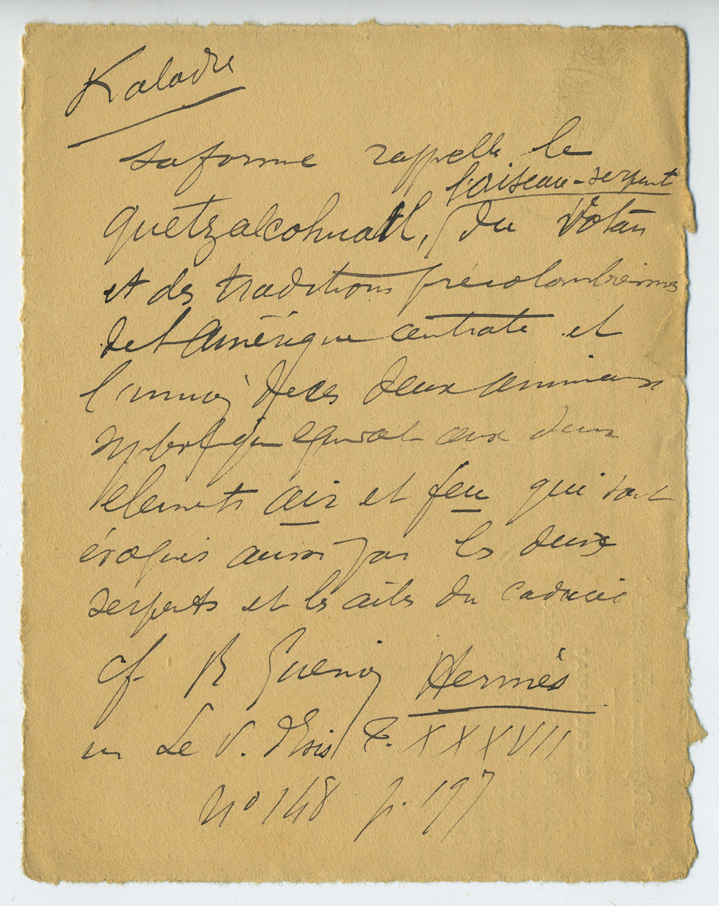 Kaladre
sa forme rappelle le
l'oiseau-serpent
quetzalcohuatl, du Votan
et des traditions précolombiennes
de l'Amérique centrale et
l'union de ces deux animaux
symbolique équivaut aux deux
éléments air et feu qui sont
évoqués aussi par les deux
serpents et les ailes du caducée
cf. R Guenon Hermès
in Le V. d'Isis T. XXXVII
n° 148 p. 197